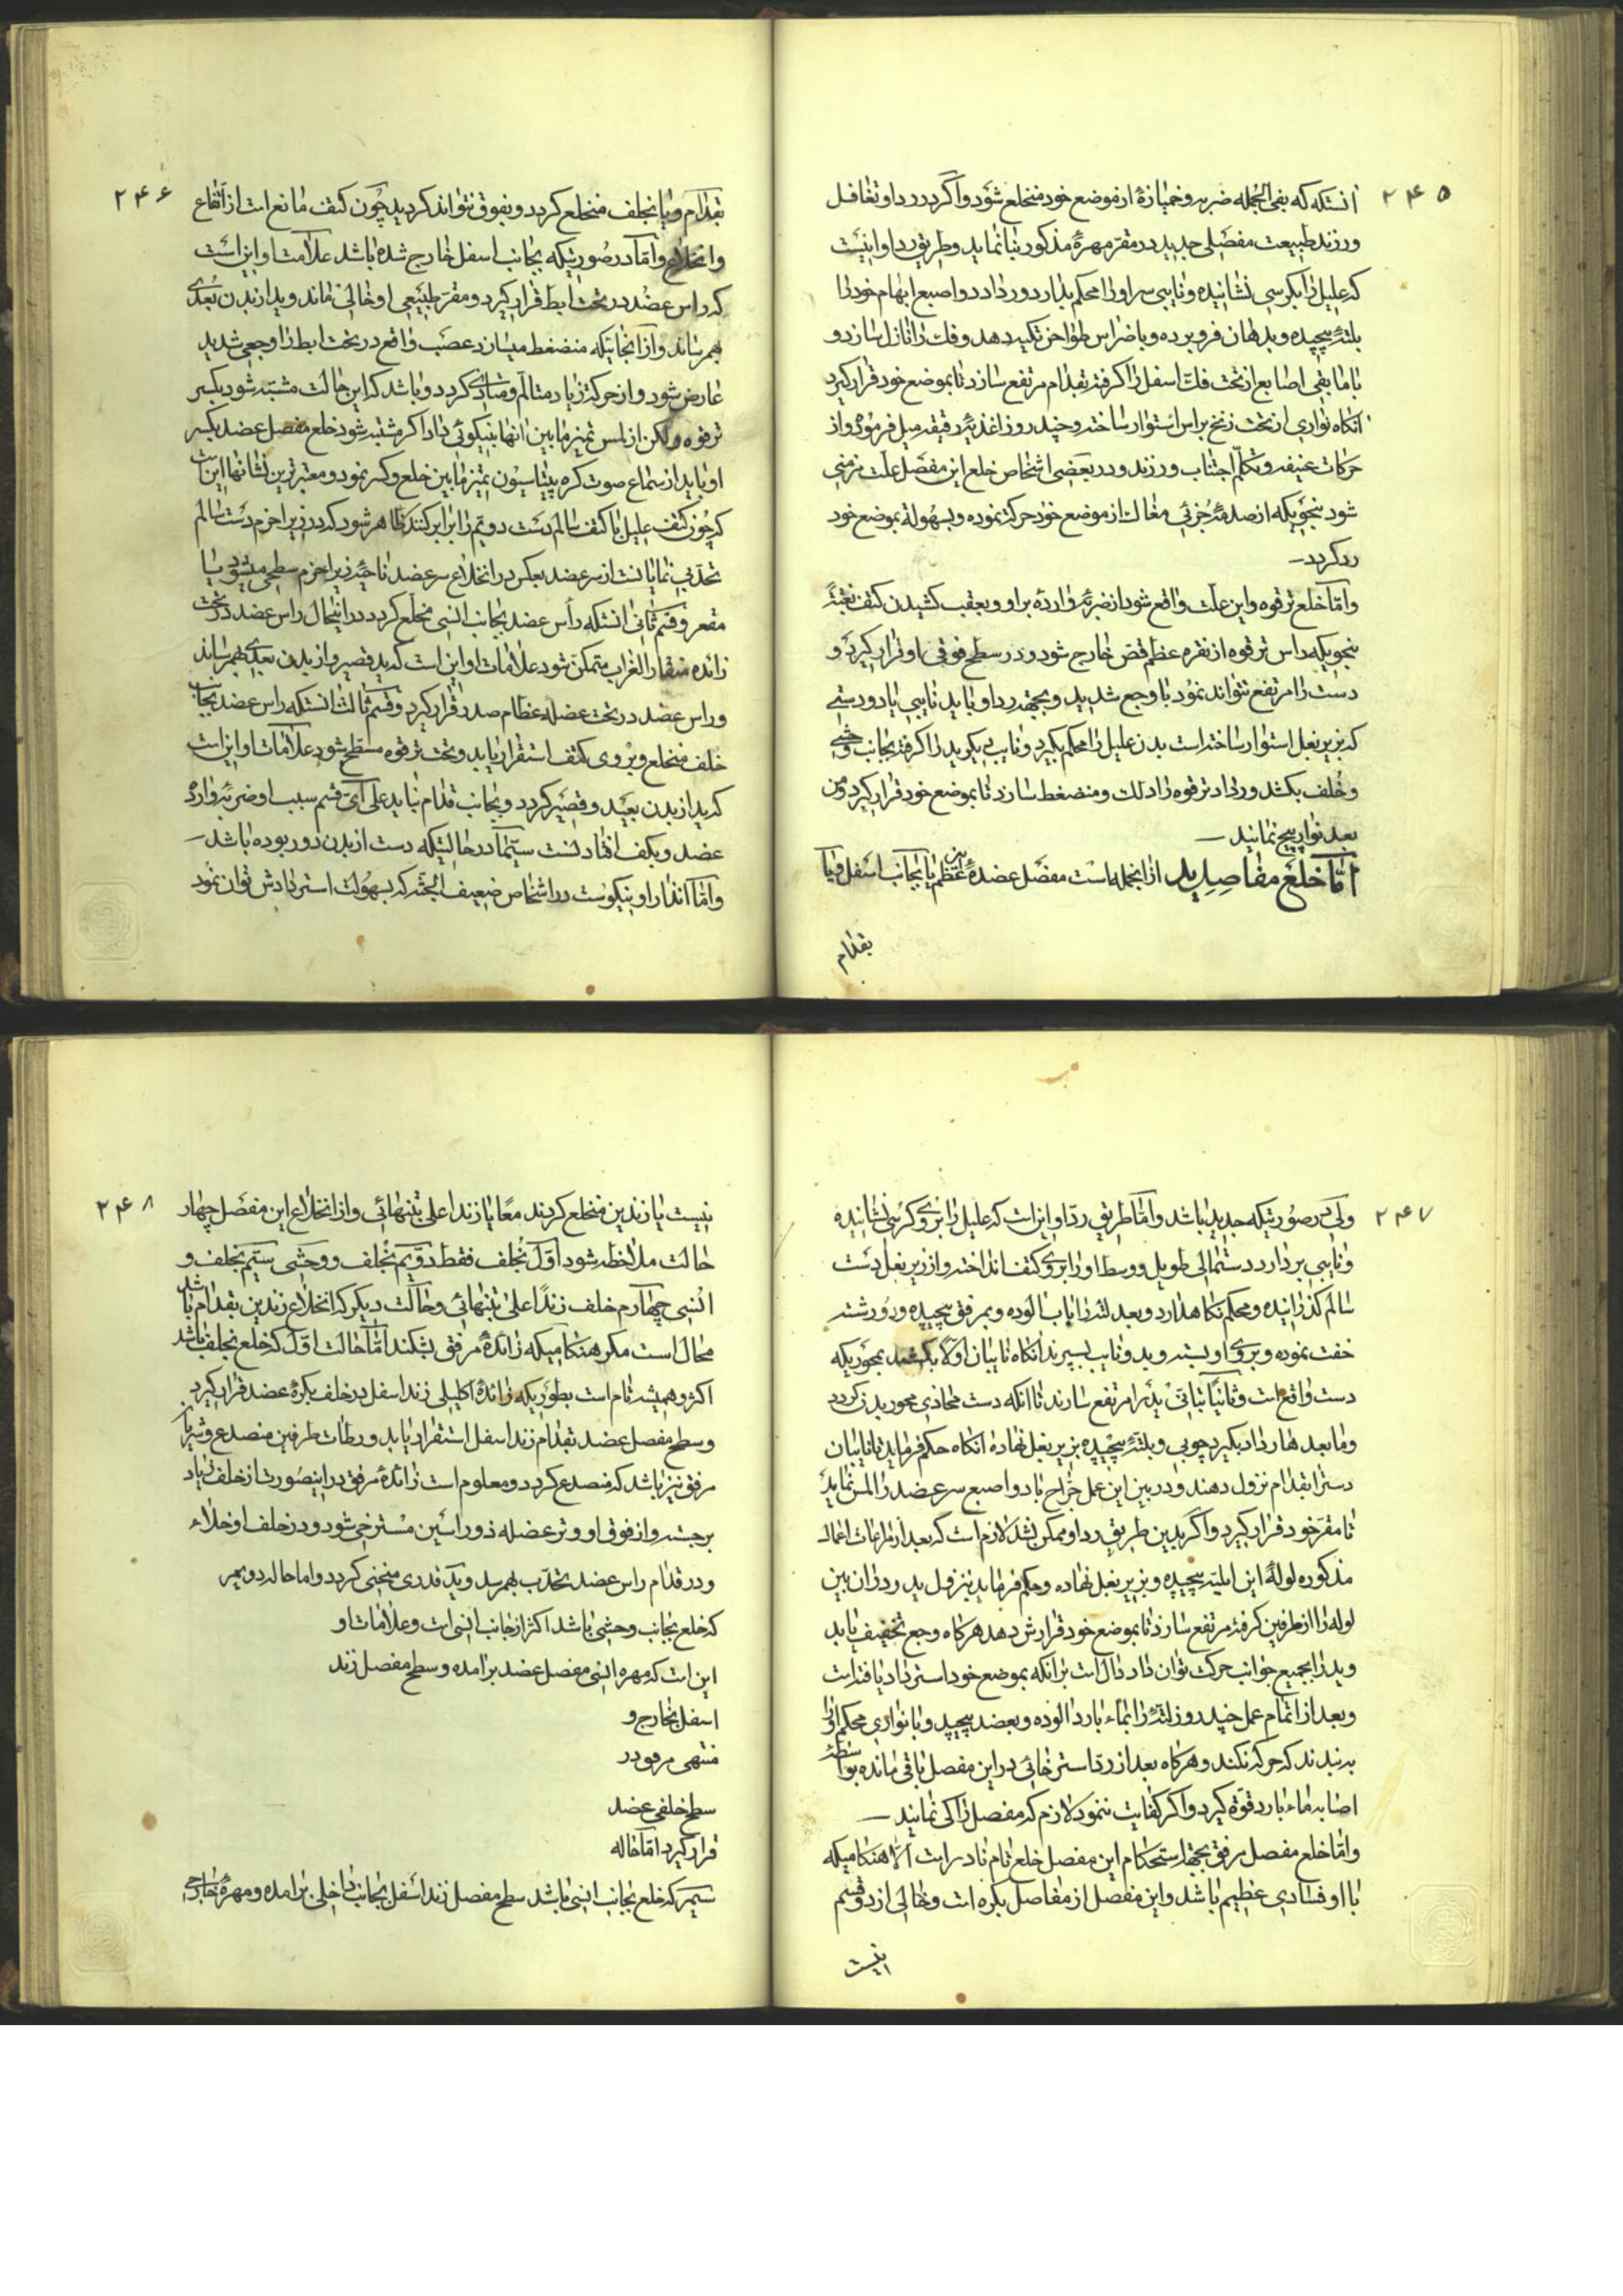 ۲۴۵
آنستکه که بفی الجمله ضربه و خمیازهٔ از موضع خود منخلع شود و اگر در رد او تغافل
ورزند طبیعت مفصلی جدید در مقر مهرهٔ مذکور بنا نماید و طریق رد او اینست
که علیل را بکرسی نشانیده و نایبی سر او را محکم بدارد و رداد دو اصبع ابهام خود را
بلتهٔ پیچیده و بدهان فرو برده و باضراس طواحن تکیه دهد و فک را نازل سازد و
با مابقی اصابع از تحت فک اسفل را گرفته بقدام مرتفع سازد تا بموضع خود قرار گیرد
آنگاه نواری از تحت زنخ بر راس استوار ساخته و چند روز اغذیهٔ رقیقه میل فرموده و از
حرکات عنیفه و تکلم اجتناب ورزند و در بعضی اشخاص خلع این مفصل علت مزمنی
شود بنحویکه از صدمهٔ جزئی مغالات از موضع خود حرکت نموده و بسهولة بموضع خود
رد گردد
و اما خلع ترقوه و این علت واقع شود از ضربهٔ وارده بر او و بعقب کشیدن کتف بغتةً
بنحویکه راس ترقوه از نقره عظم قص خارج شود و در سطح فوقی او قرار گیرد و
دست را مرتفع نتواند نمود با وجع شدید و بجهة رد او باید نایبی با دو دستی
که بزیر بغل استوار ساخته است بدن علیل را محکم بگیرد و نایب دیگر ید را گرفته بجانب وحشی
و خلف بکشد و رداد ترقوه را دلک و منضغط سازد تا بموضع خود قرار گیرد و من
بعد نوار پیچ نمایند
اما خلع مفاصل ید از آنجمله است مفصل عضدهٔ این عظم یا بجانب اسفل و یا
بقدام
۲۴۶
بقدام و یا بخلف منخلع گردد و بفوق نتواند گردید چون کتف مانع است از ارتفاع
و انخلاع و اما در صورتیکه بجانب اسفل خارج شده باشد علامت او این است
که راس عضد در تحت ابط قرار گیرد و مقر طبیعی او خالی ماند و ید از بدن بعدی
بهم رساند و از آنجائیکه منضغط میسازد عصب واقع در تحت ابط را وجعی شدید
عارض شود و از حرکت زیاد متالم و متاذی گردد و باشد که این حالت مشتبه شود بکسر
ترقوه ولکن از لمس تمیز مابین آنها بنیکوئی داد اگر مشتبه شود خلع مفصل عضد بکسر
او باید از سماع صوت کره پیتاسیون تمیز مابین خلع و کسر نمود و معتبرترین نشانها این است
که چون کتف علیل با کتف سالم دست دویم را برابر کنند ظاهر شود که در زیر اخرم دست سالم
تحدبی نمایانست از سر عضد بعکس در انخلاع سر عضد ناحیهٔ زیر اخرم سطحی میشود یا
مقعر و قسم ثانی آنستکه رأس عضد بجانب انسی منخلع گردد در اینحال راس عضد در تحت
زائده منقار الغراب متمکن شود علامات او این است که ید قصیر و از بدن بعدی بهم رساند
و راس عضد در تحت عضله عظام صدر قرار گیرد و قسم ثالث آنستکه راس عضد بجانب
خلف منخلع و بروی کتف استقرار یابد و تحت ترقوه مسطح شود علامات او این است
که ید از بدن بعید و قصیر گردد و بجانب قدام نیاید علی ای قسم سبب او ضربهٔ وارده
عضد و بکف افتادنست سیما در حالتیکه دست از بدن دور بوده باشد
و اما انذار او نیکوست در اشخاص ضعیف الجثه که بسهولت استردادش توان نمود
۲۴۷
ولی در صورتیکه جدید باشد و اما طریق رد او این است که علیل را بروی کرسی نشانیده
و نایبی بردارد دستمالی طویل و وسط او را بروی کتف انداخته و از زیر بغل دست
سالم گذرانیده و محکم نگاهدارد و بعد لته را باب آلوده و بمرفق پیچیده و رورشته
خفت نموده و بروی او بسته و بدو نایب بسپرند آنگاه نایبان اولا بکشند بمحوریکه
دست واقع است و ثانیاً بتانی ید را مرتفع سازند تا آنکه دست محاذی محور بدن گردد
و مابعدها رداد بگیرد چوبی و بلتهٔ پیچیده بزیر بغل نهاده آنگاه حکم فرماید تا نایبان
دست را بقدام نزول دهند و در بین این عمل جراح با دو اصبع سر عضد را لمس نماید
تا مقر خود قرار گیرد و اگر بدین طریق رد او ممکن نشد لازم است که بعد از مراعات اعمال
مذکوره لولهٔ این ابلیه پیچیده و بزیر بغل نهاده و حکم فرماید بنزول ید و در آن بین
لوله را از طرفین گرفته مرتفع سازد تا بموضع خود قرارش دهد هرگاه وجع تخفیف یابد
و ید را بجمیع جوانب حرکت توان داد دال است بر آنکه بموضع خود استرداد یافته است
و بعد از اتمام عمل چند روز لتهٔ را بماء بارد آلوده و بعضد پیچید و با نواری محکم او را
ببندند که حرکه نکند و هرگاه بعد از رد استرخائی در این مفصل باقی مانده بواسطهٔ
اصابه ماء بارد قوة گیرد و اگر کفایت ننمود لازم که مفصل را کی نمایند
و اما خلع مفصل مرفق بجهة استحکام این مفصل خلع تام نادر است الا هنگامیکه
با او فسادی عظیم باشد و این مفصل از مفاصل بکره است و خالی از دو قسم
نیست
۲۴۸
نیست یا زندین منخلع گردند معًا یا زند اعلی بتنهائی و از انخلاع این مفصل چهار
حالت ملاحظه شود اول بخلف فقط دویم بخلف و وحشی سیم بخلف و
انسی چهارم خلف زند اعلی بتنهائی و حالت دیگر که انخلاع زندین بقدام باشد
محال است مگر هنگامیکه زائدهٔ مرفق بشکند اما حالت اول که خلع بخلف باشد
اکثر و همیشه تام است بطوریکه زائدهٔ اکلیلی زند اسفل در خلف بکرهٔ عضد قرار گیرد
و سطح مفصل عضد بقدام زند اسفل استقرار یابد و رباطات طرفین منصدع و شریان
مرفق نیز باشد که منصدع گردد و معلوم است زائدهٔ مرفق در اینصورت از خلف زیاد
برجسته و از فوق او وتر عضله ذو راسین مسترخی شود و در خلف او خلاء
و در قدام راس عضد تحدب بهم رسد و ید قدری منحنی گردد و اما حاله دویم
که خلع بجانب وحشی باشد اکثر از جانب انسی است و علامات او
این است که مهره انسی مفصل عضد برآمده و سطح مفصل زند
اسفل بخارج و
منتهی مرفق در
سطح خلفی عضد
قرار گیرد اما حاله
سیم که خلع بجانب انسی باشد سطح مفصل زند اسفل بجانب داخلی برآمده و مهرهٔ خارجی